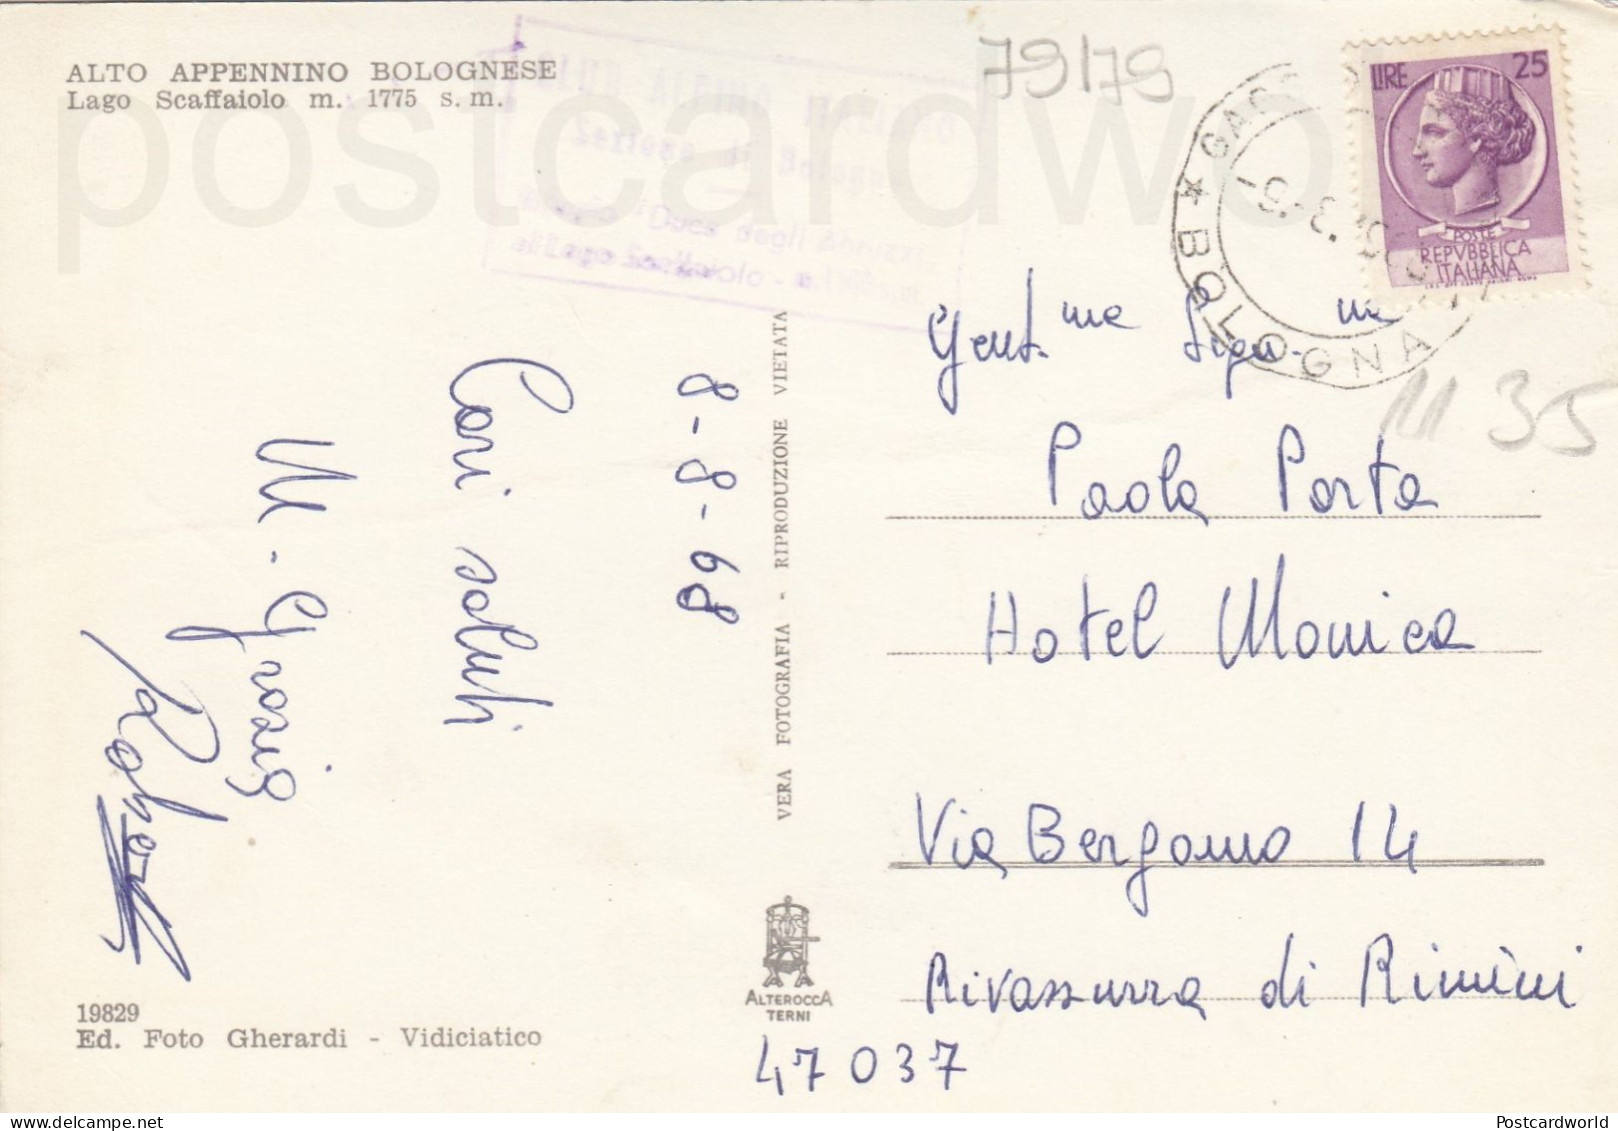 ALTO APPENNINO BOLOGNESE
Lago Scaffaiolo m. 1775 s. m.
postcardwo
CLUB ALPINO ITALIANO
Sezione di Bologna
Duca degli Abruzzi
79/79
LIRE 25
POSTE
REPVBBLICA
ITALIANA
BOLOGNA
11 35
8-8-68
Cari saluti
M. Grazia
Roberto
VERA FOTOGRAFIA - RIPRODUZIONE VIETATA
Gent.ma Sign.na
Paola Porta
Hotel Monica
Via Bergamo 14
Rivazzurra di Rimini
47037
ALTEROCCA
TERNI
19829
Ed. Foto Gherardi - Vidiciatico
Postcardworld